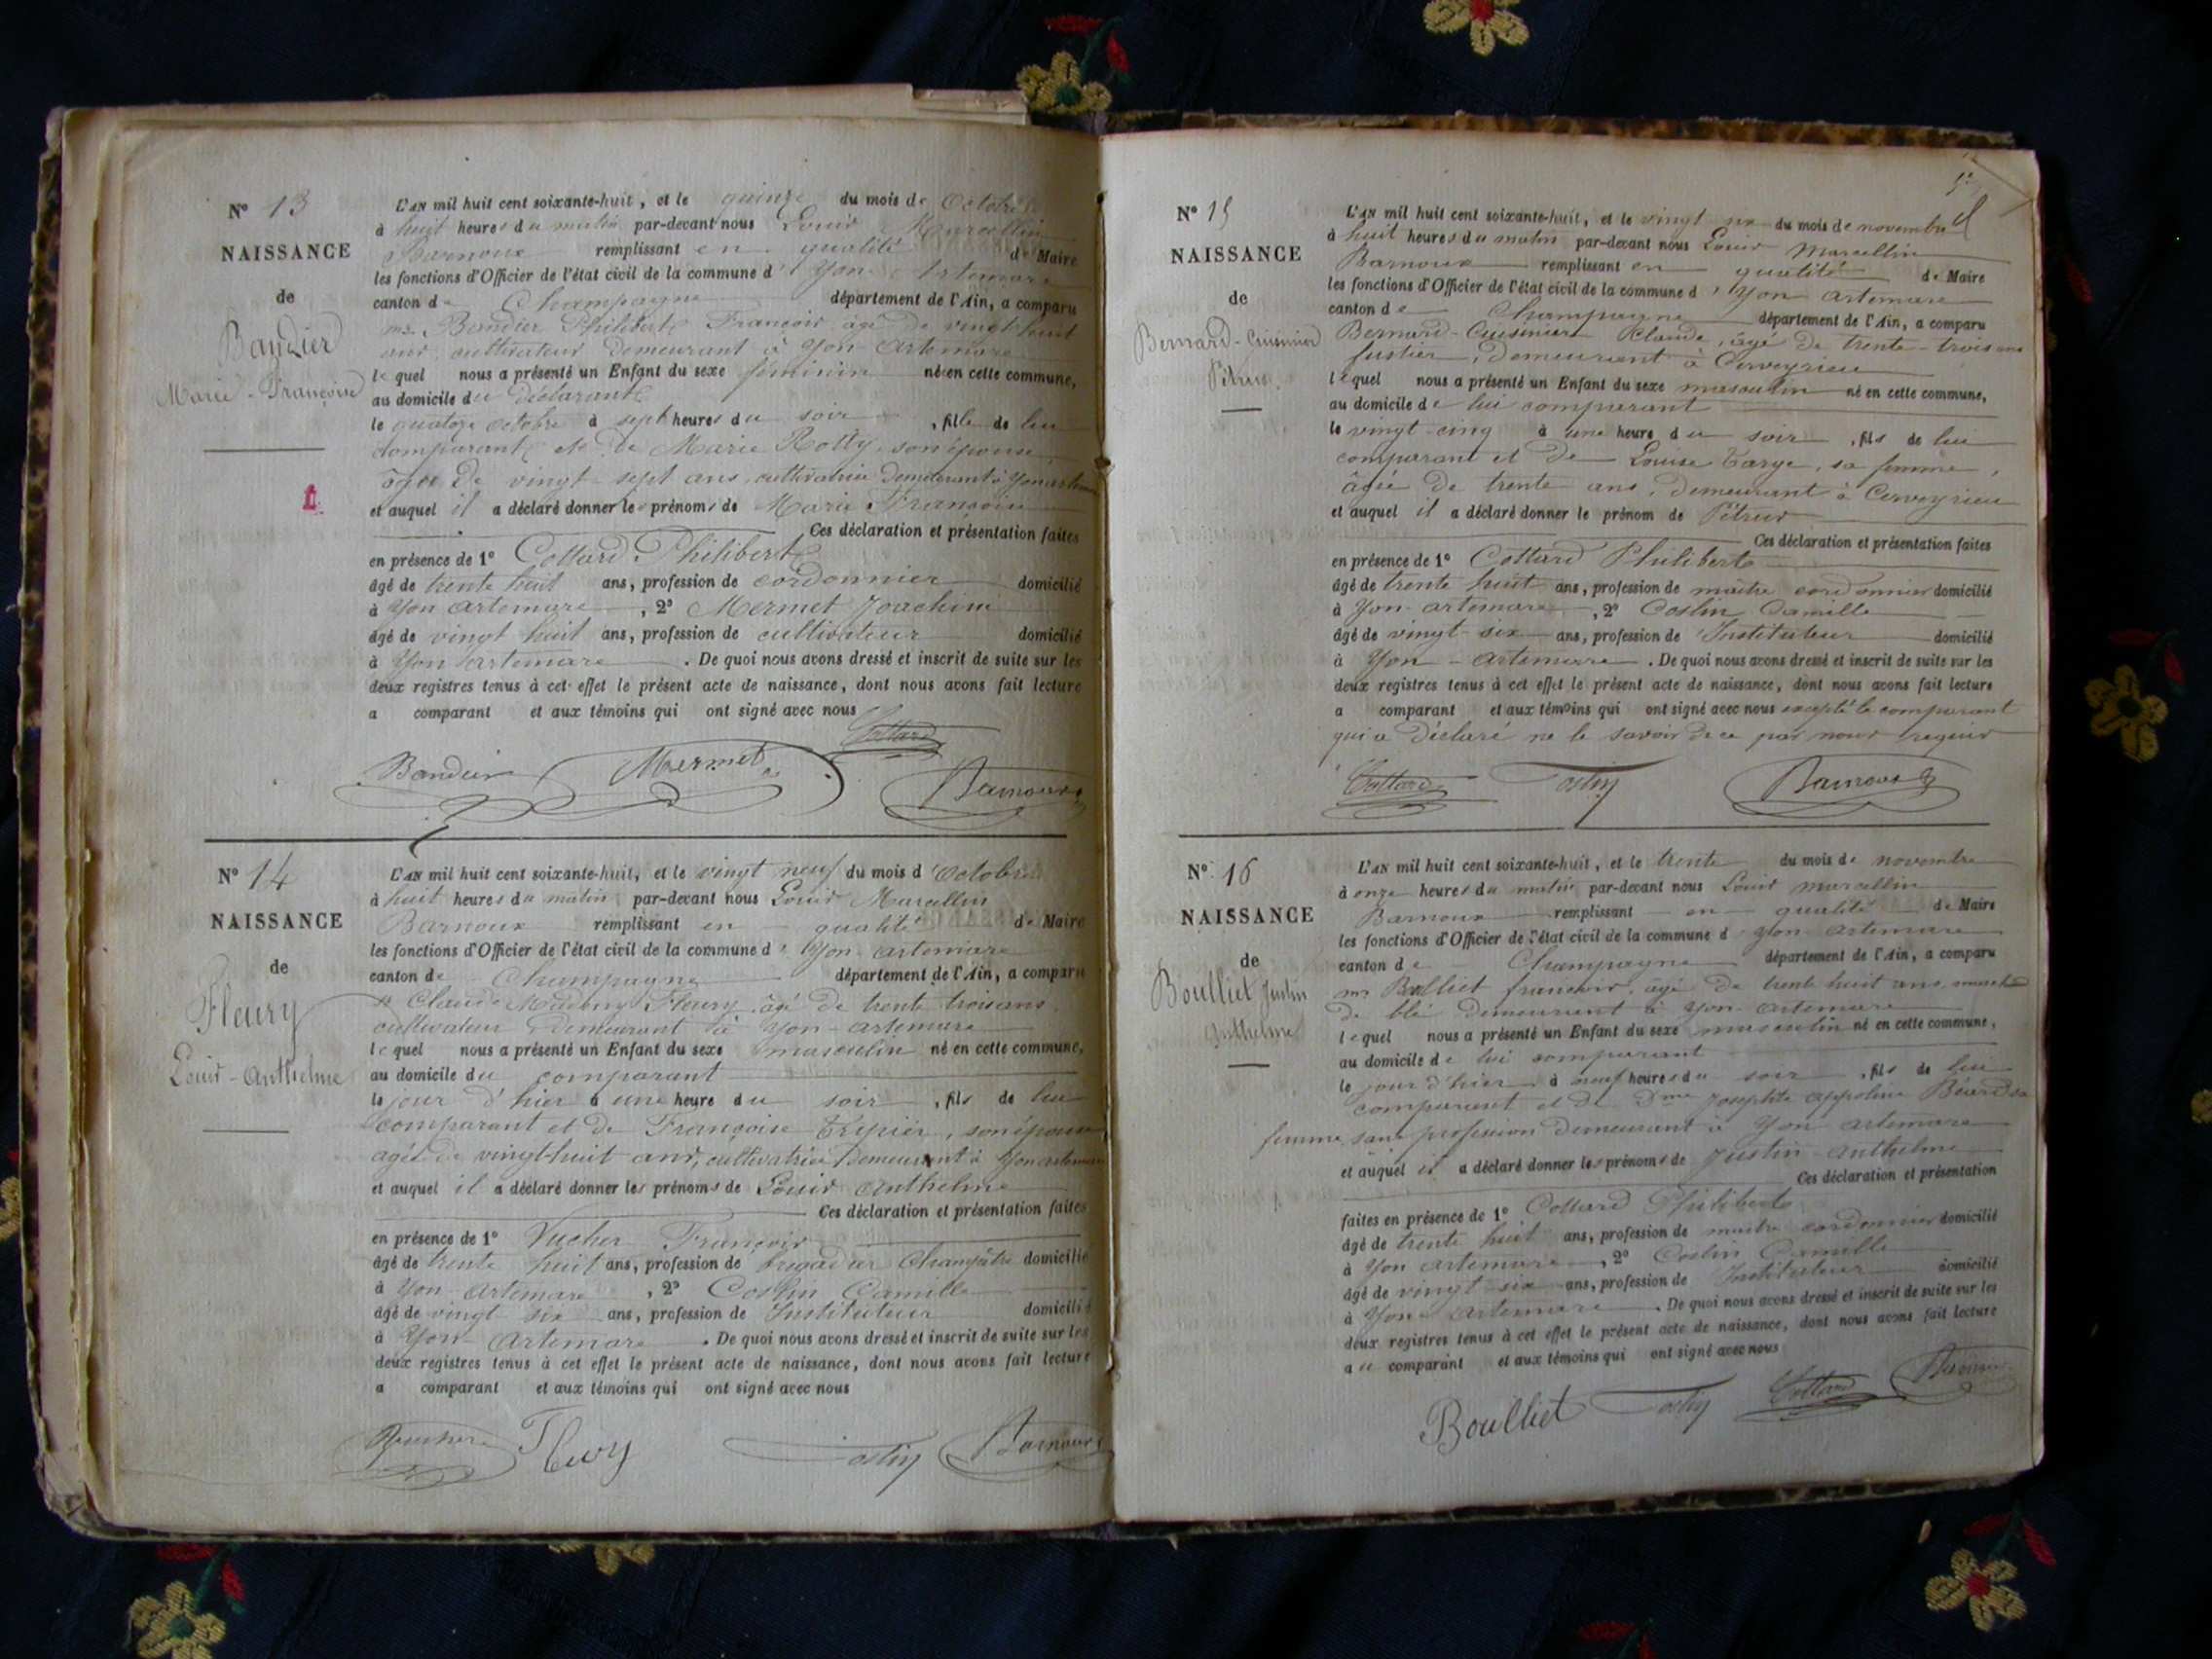 N° 13
NAISSANCE
de
Baudier
Marie-Françoise
L'AN mil huit cent soixante-huit, et le quinze du mois de Octobre
à huit heures du matin par-devant nous Louis Marcellin
Barnoux remplissant en qualité de Maire
les fonctions d'Officier de l'état civil de la commune d'Yon-Artemare
canton de Champagne département de l'Ain, a comparu
mr Baudier Philibert François âgé de vingt huit
ans, cultivateur demeurant à Yon-Artemare
lequel nous a présenté un Enfant du sexe féminin né en cette commune,
au domicile du déclarant
le quatorze octobre à sept heures du soir, fille de lui
comparant et de Marie Rotty, son épouse,
âgée de vingt-sept ans, cultivatrice demeurant à Yon artemare
et auquel il a déclaré donner les prénoms de Marie Françoise
Ces déclaration et présentation faites
en présence de 1° Cottard Philibert
âgé de trente huit ans, profession de cordonnier domicilié
à Yon artemare, 2° Mermet Joachim
âgé de vingt huit ans, profession de cultivateur domicilié
à Yon artemare. De quoi nous avons dressé et inscrit de suite sur les
deux registres tenus à cet effet le présent acte de naissance, dont nous avons fait lecture
a comparant et aux témoins qui ont signé avec nous
Cottard
Baudier Mermet Barnoux
N° 14
NAISSANCE
de
Fleury
Louis-Anthelme
L'AN mil huit cent soixante-huit, et le vingt neuf du mois d'Octobre
à huit heures du matin par-devant nous Louis Marcellin
Barnoux remplissant en qualité de Maire
les fonctions d'Officier de l'état civil de la commune d'Yon-artemare
canton de Champagne département de l'Ain, a comparu
Claude Fleury, âgé de trente trois ans
cultivateur demeurant à Yon-artemare
lequel nous a présenté un Enfant du sexe masculin né en cette commune,
au domicile du comparant
le jour d'hier à une heure du soir, fils de lui
comparant et de Françoise Tripier, son épouse
âgée de vingt-huit ans, cultivatrice demeurant à Yon artemare
et auquel il a déclaré donner les prénoms de Louis Anthelme
Ces déclaration et présentation faites
en présence de 1° Vucher François
âgé de trente huit ans, profession de brigadier champêtre domicilié
à Yon Artemare, 2° Costin Camille
âgé de vingt six ans, profession de Instituteur domicilié
à Yon Artemare. De quoi nous avons dressé et inscrit de suite sur les
deux registres tenus à cet effet le présent acte de naissance, dont nous avons fait lecture
a comparant et aux témoins qui ont signé avec nous
Fleury Costin Barnoux
N° 15
NAISSANCE
de
Bernard-Cuisinier
Pétrus
L'AN mil huit cent soixante-huit, et le vingt six du mois de novembre
à huit heures du matin par-devant nous Louis Marcellin
Barnoux remplissant en qualité de Maire
les fonctions d'Officier de l'état civil de la commune d'Yon artemare
canton de Champagne département de l'Ain, a comparu
Bernard-Cuisinier Claude, âgé de trente-trois ans
demeurant à Cerveyrieu
lequel nous a présenté un Enfant du sexe masculin né en cette commune,
au domicile de lui comparant
le vingt-cinq à une heure du soir, fils de lui
comparant et de Louise Targe, sa femme,
âgée de trente ans, demeurant à Cerveyrieu
et auquel il a déclaré donner le prénom de Pétrus
Ces déclaration et présentation faites
en présence de 1° Cottard Philibert
âgé de trente huit ans, profession de maître cordonnier domicilié
à Yon-artemare, 2° Costin Camille
âgé de vingt-six ans, profession de Instituteur domicilié
à Yon-Artemare. De quoi nous avons dressé et inscrit de suite sur les
deux registres tenus à cet effet le présent acte de naissance, dont nous avons fait lecture
a comparant et aux témoins qui ont signé avec nous excepté le comparant
qui a déclaré ne le savoir de ce par nous requis
Cottard Costin Barnoux
N° 16
NAISSANCE
de
Boulliet Justin
Anthelme
L'AN mil huit cent soixante-huit, et le trente du mois de novembre
à onze heures du matin par-devant nous Louis Marcellin
Barnoux remplissant en qualité de Maire
les fonctions d'Officier de l'état civil de la commune d'Yon-artemare
canton de Champagne département de l'Ain, a comparu
mr Boulliet François, âgé de trente huit ans, marchand
de blé demeurant à Yon-artemare
lequel nous a présenté un Enfant du sexe masculin né en cette commune,
au domicile de lui comparant
le jour d'hier à neuf heures du soir, fils de lui
comparant et de Dme Josephte Appoline Béard sa
femme, sans profession demeurant à Yon artemare
et auquel il a déclaré donner les prénoms de Justin-Anthelme
Ces déclaration et présentation
faites en présence de 1° Cottard Philibert
âgé de trente huit ans, profession de maître cordonnier domicilié
à Yon Artemare, 2° Costin Camille
âgé de vingt-six ans, profession de Instituteur domicilié
à Yon-Artemare. De quoi nous avons dressé et inscrit de suite sur les
deux registres tenus à cet effet le présent acte de naissance, dont nous avons fait lecture
au comparant et aux témoins qui ont signé avec nous
Boulliet Costin Cottard Barnoux